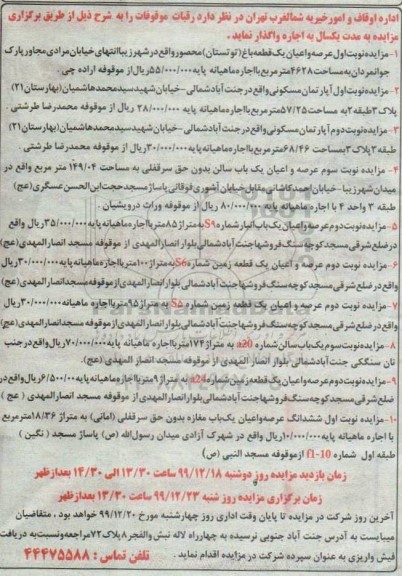 اداره اوقاف و امور خیریه شمالغرب تهران در نظر دارد رقبات موقوفات را به شرح ذیل از طریق برگزاری
مزایده به مدت یکسال به اجاره واگذار نماید.
۱- مزایده نوبت اول عرصه و اعیان یک قطعه باغ (توتستان) محصور واقع در شهر زیبا انتهای خیابان مرادی مجاور پارک
جوانمردان به مساحت ۴۶۲۸ متر مربع با اجاره ماهیانه پایه ۵۵/۰۰۰/۰۰۰ ریال از موقوفه اراده چی.
۲- مزایده نوبت اول آپارتمان مسکونی واقع در جنت آباد شمالی - خیابان شهید سید محمد هاشمیان (بهارستان ۲۱)
پلاک ۳ طبقه ۲ به مساحت ۵۷/۲۵ متر مربع با اجاره ماهیانه پایه ۲۸/۰۰۰/۰۰۰ ریال از موقوفه محمدرضا طرشتی.
۳- مزایده نوبت دوم آپارتمان مسکونی واقع در جنت آباد شمالی - خیابان شهید سید محمد هاشمیان (بهارستان ۲۱)
طبقه ۲ پلاک ۳ بمساحت ۶۸/۴۶ متر مربع با اجاره ماهیانه پایه ۳۰/۰۰۰/۰۰۰ ریال از موقوفه محمدرضا طرشتی.
۴- مزایده نوبت سوم عرصه و اعیان یک باب سالن بدون حق سرقفلی به مساحت ۱۴۹/۰۴ متر مربع واقع در
میدان شهر زیبا - خیابان احمد کاشانی مقابل خیابان آشوری فوقانی پاساژ مسجد حجت ابن الحسن عسگری (عج)
طبقه ۳ واحد ۴ با اجاره ماهیانه پایه ۸۰/۰۰۰/۰۰۰ ریال از موقوفه وراث درویشیان.
۵- مزایده نوبت دوم عرصه و اعیان یک باب انبار شماره S9 به متراژ ۸۵ متر با اجاره ماهیانه پایه ۳۵/۰۰۰/۰۰۰ ریال واقع
در ضلع شرقی مسجد کوچه سنگ فروشها جنت آباد شمالی بلوار انصار المهدی از موقوفه مسجد انصار المهدی (عج)
۶- مزایده نوبت دوم عرصه و اعیان یک قطعه زمین شماره S6 به متراژ ۱۰۰ متر با اجاره ماهیانه پایه ۳۰/۰۰۰/۰۰۰ ریال
واقع در ضلع شرقی مسجد کوچه سنگ فروشها جنت آباد شمالی بلوار انصار المهدی از موقوفه مسجد انصار المهدی (عج)
۷- مزایده نوبت دوم عرصه و اعیان یک قطعه زمین شماره S5 به متراژ ۹۵ متر با اجاره ماهیانه ۳۰/۰۰۰/۰۰۰ ریال
واقع در ضلع شرقی مسجد کوچه سنگ فروشها جنت آباد شمالی بلوار انصار المهدی از موقوفه مسجد انصار المهدی (عج)
۸- مزایده نوبت سوم یک باب سالن شماره a20 به متراژ ۱۷۴ متر با اجاره ماهیانه پایه ۷۰/۰۰۰/۰۰۰ ریال واقع در جنب
نان سنگکی جنت آباد شمالی بلوار انصار المهدی از موقوفه مسجد انصار المهدی (عج).
۹- مزایده نوبت دوم عرصه و اعیان یک قطعه زمین شماره a24 به متراژ ۹ متر با اجاره ماهیانه پایه ۶/۵۰۰/۰۰۰ ریال واقع در
ضلع شرقی مسجد کوچه سنگ فروشها جنت آباد شمالی بلوار انصار المهدی از موقوفه مسجد انصار المهدی (عج)
۱۰- مزایده نوبت اول ششدانگ عرصه و اعیان یک باب مغازه بدون حق سرقفلی (امانی) به متراژ ۱۸/۳۶ متر مربع
با اجاره ماهیانه پایه ۱۰/۰۰۰/۰۰۰ ریال واقع در شهرک آزادی میدان رسول الله (ص) پاساژ مسجد (نگین)
طبقه اول شماره f1-10 از موقوفه مسجد النبی (ص)
زمان بازدید مزایده روز دوشنبه ۹۹/۱۲/۱۸ ساعت ۱۳/۳۰ الی ۱۴/۳۰ بعدازظهر
زمان برگزاری مزایده روز شنبه ۹۹/۱۲/۲۳ ساعت ۱۳/۳۰ بعدازظهر
آخرین روز شرکت در مزایده تا پایان وقت اداری روز چهارشنبه مورخ ۹۹/۱۲/۲۰ خواهد بود. متقاضیان
میبایست به آدرس جنت آباد جنوبی نرسیده به چهارراه لاله نبش والفجر ۸ پلاک ۷۲ مراجعه و نسبت به دریافت
فیش واریزی به عنوان سپرده شرکت در مزایده اقدام نماید. تلفن تماس: ۴۴۴۷۵۵۸۸